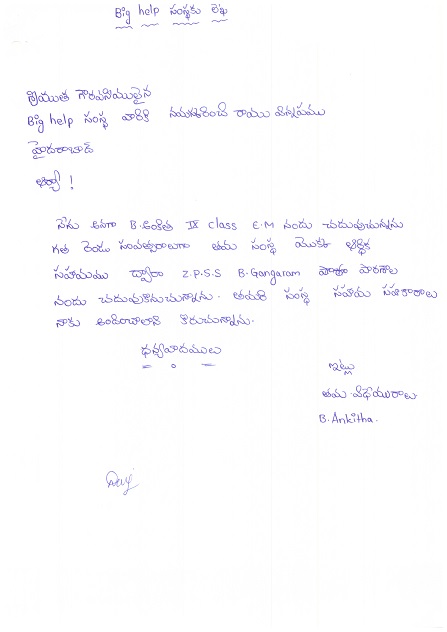 Big help సంస్థకు లేఖ
శ్రీయుత గౌరవనీయులైన
Big help సంస్థ వారికి నమస్కరించి రాయు విన్నపము
హైదరాబాద్
ఆర్యా !
నేను అనగా B.అంకిత IX class E.M నందు చదువుచున్నాను
గత రెండు సంవత్సరాలుగా తమ సంస్థ యొక్క ఆర్థిక
సహాయము ద్వారా Z.P.S.S B.Gangaram పాఠశాల
నందు చదువుకొనుచున్నాను. తమరి సంస్థ సహాయ సహకారాలు
నాకు అందించాలని కోరుచున్నాను.
ధన్యవాదములు
ఇట్లు
తమ విధేయురాలు
B.Ankitha.